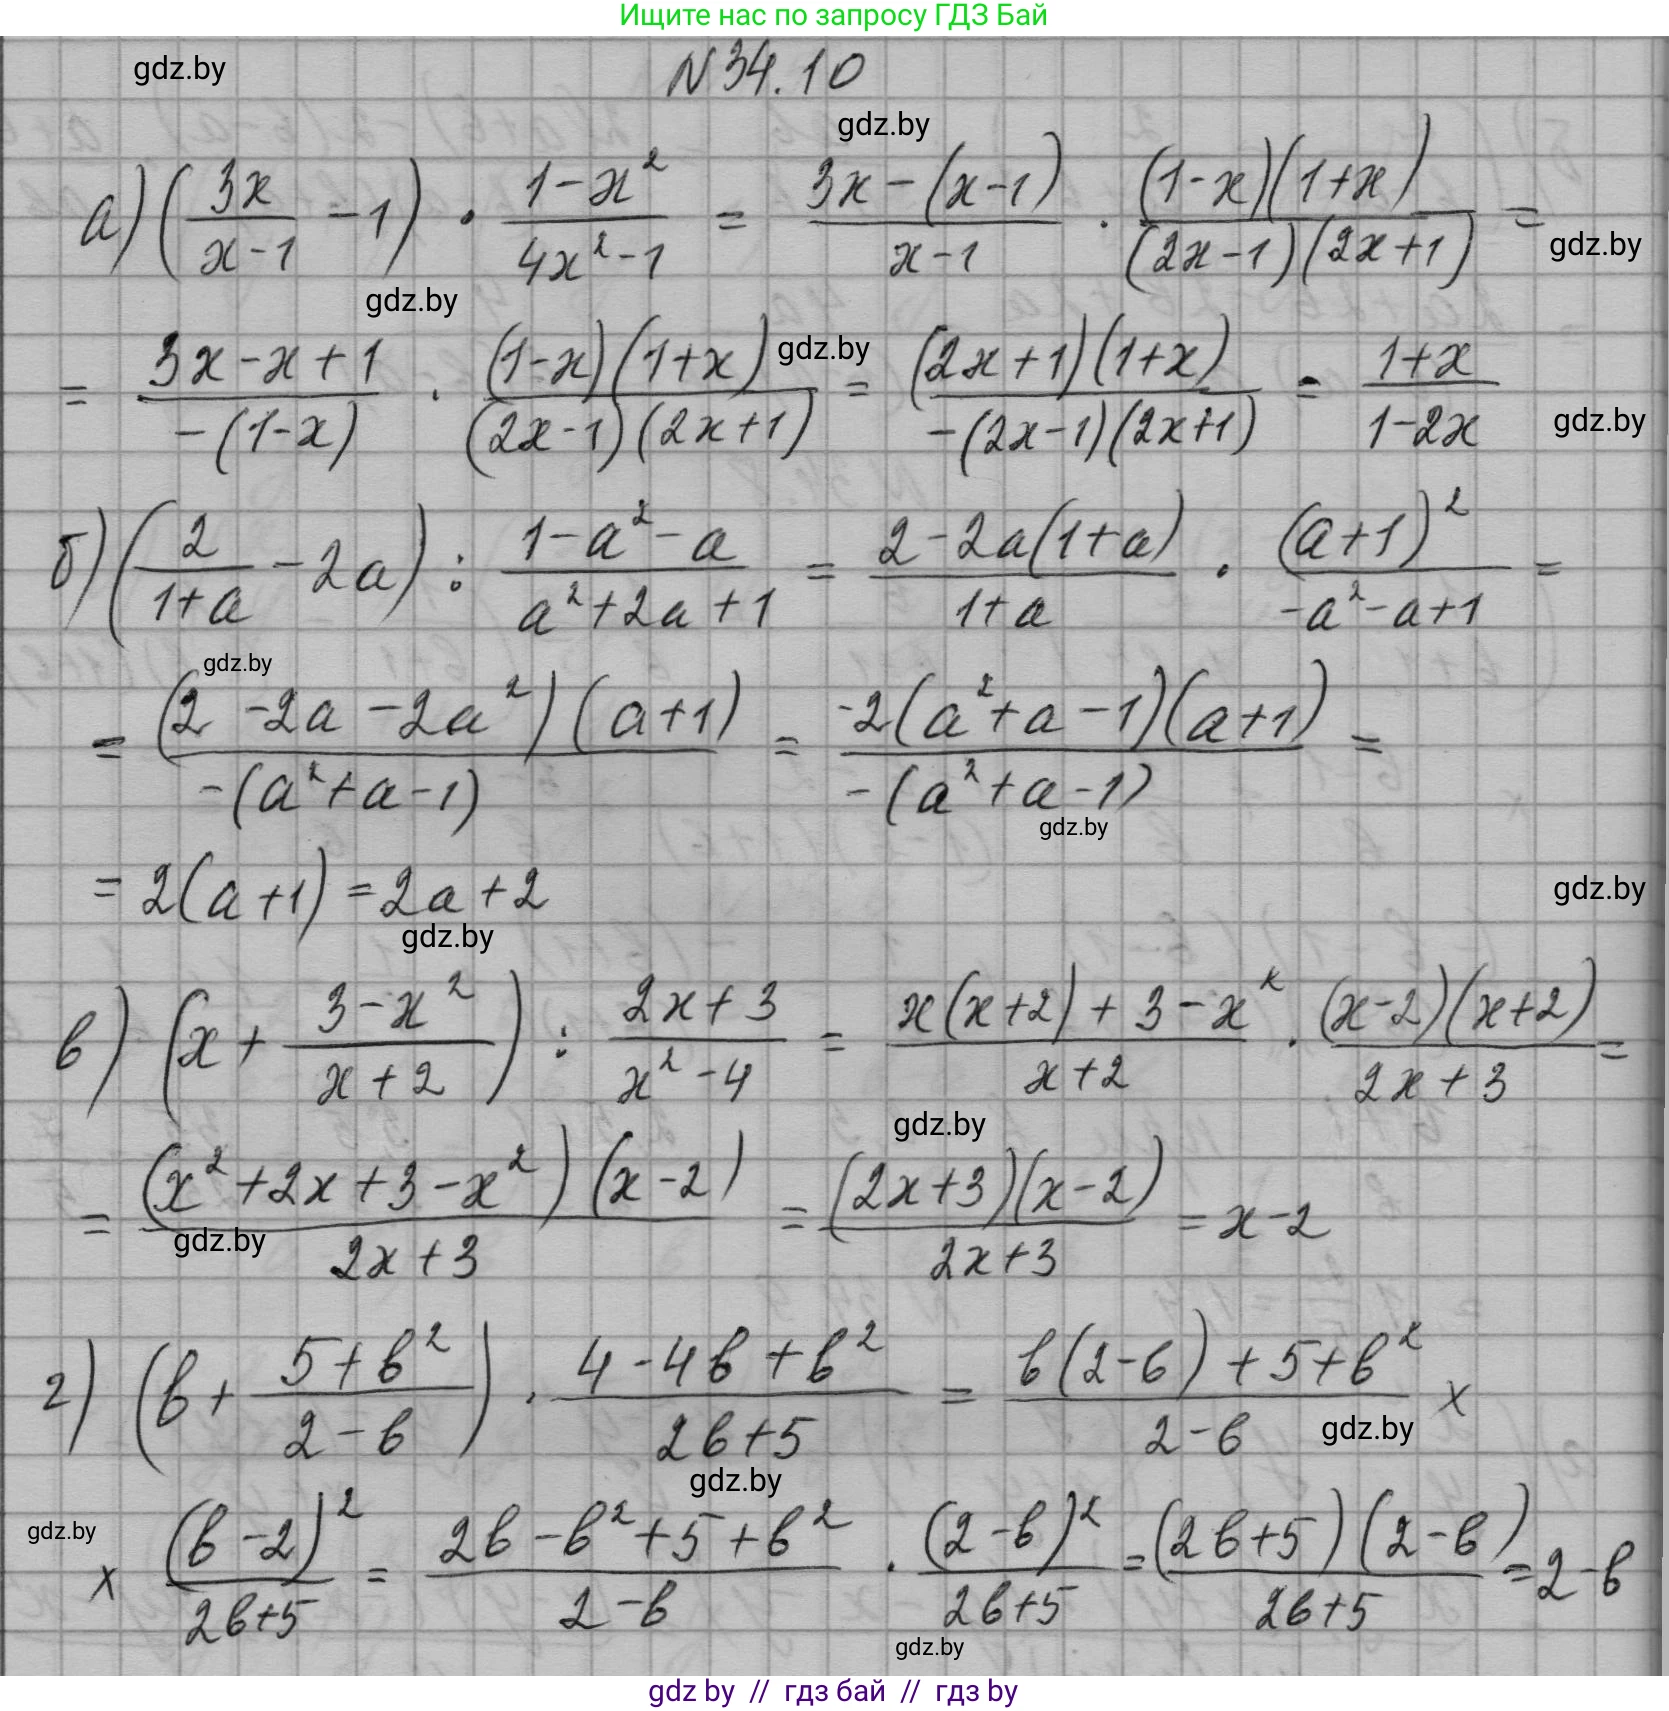 Ищите нас по запросу ГДЗ Бай
gdz.by
N 34.10
gdz.by
а) (3x/(x-1) - 1) · (1-x²)/(4x²-1) = (3x-(x-1))/(x-1) · ((1-x)(1+x))/((2x-1)(2x+1)) =
gdz.by
gdz.by
= (3x-x+1)/(-(1-x)) · ((1-x)(1+x))/((2x-1)(2x+1)) = ((2x+1)(1+x))/(-(2x-1)(2x+1)) = (1+x)/(1-2x)
gdz.by
gdz.by
б) (2/(1+a) - 2a) : (1-a²-a)/(a²+2a+1) = (2-2a(1+a))/(1+a) · (a+1)²/(-a²-a+1) =
gdz.by
= ((2-2a-2a²)(a+1))/(-(a²+a-1)) = (-2(a²+a-1)(a+1))/(-(a²+a-1)) =
gdz.by
= 2(a+1) = 2a+2
gdz.by
gdz.by
в) (x + (3-x²)/(x+2)) : (2x+3)/(x²-4) = (x(x+2)+3-x²)/(x+2) · ((x-2)(x+2))/(2x+3) =
gdz.by
= ((x²+2x+3-x²)(x-2))/(2x+3) = ((2x+3)(x-2))/(2x+3) = x-2
gdz.by
г) (b + (5+b²)/(2-b)) · (4-4b+b²)/(2b+5) = (b(2-b)+5+b²)/(2-b) ×
gdz.by
gdz.by
gdz.by
× (b-2)²/(2b+5) = (2b-b²+5+b²)/(2-b) · (2-b)²/(2b+5) = ((2b+5)(2-b))/(2b+5) = 2-b
gdz.by
gdz by // гдз бай // гдз by